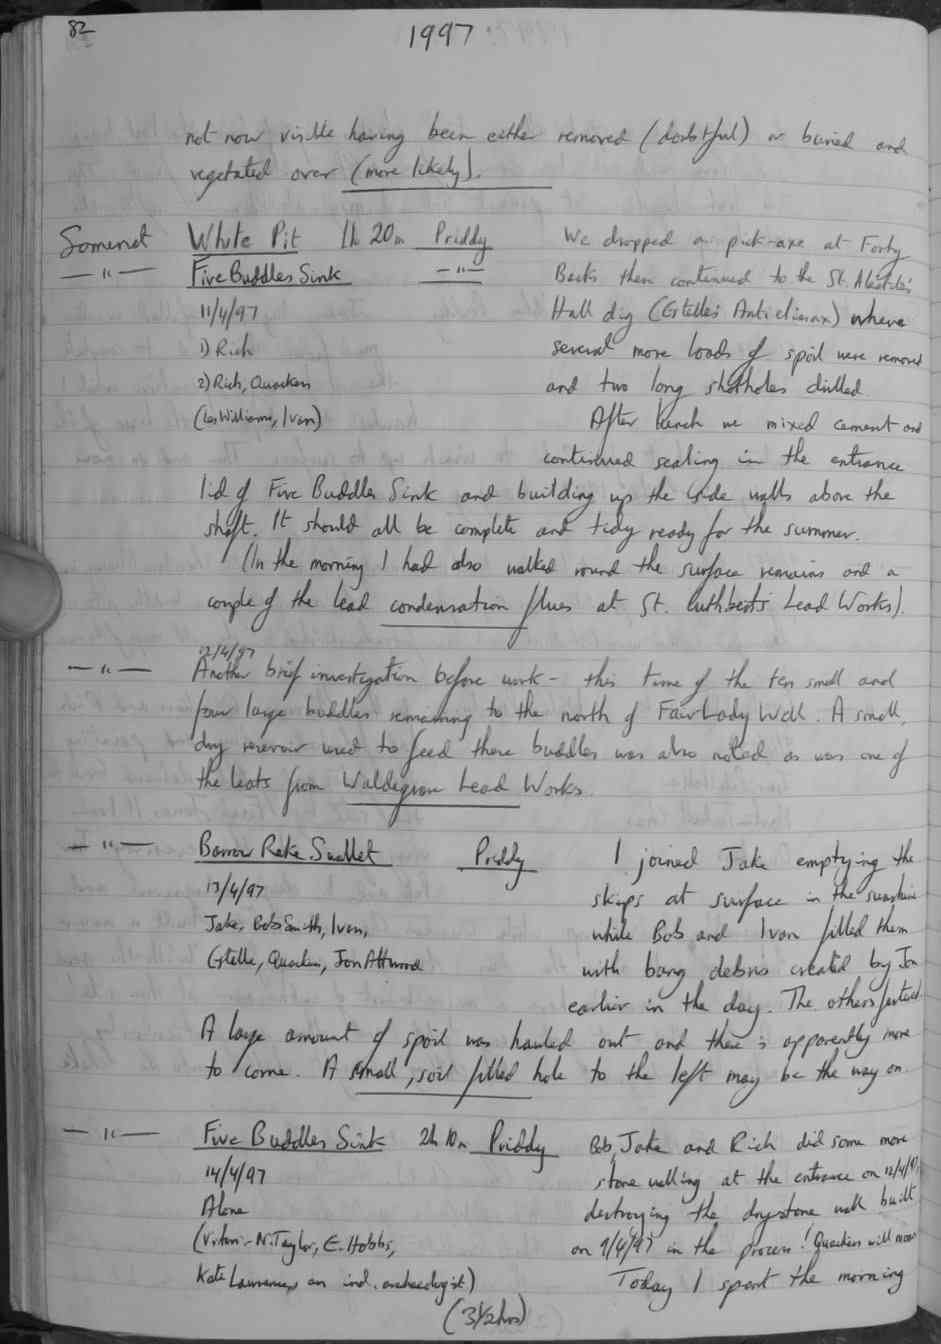 82
1997
not now visible having been either removed (doubtful) or buried and
vegetated over (more likely).
Somerset White Pit 1h 20m Priddy We dropped a pick-axe at Forty
— " — Five Buddles Sink — " — Backs then continued to the St. Alactite's
11/4/97 Hall dig (Estelle's Anticlimax) where
1) Rich several more loads of spoil were removed
2) Rich, Quackers and two long shotholes drilled.
(Les Williams, Ivan) After lunch we mixed cement and
continued sealing in the entrance
lid of Five Buddles Sink and building up the side walls above the
shaft. It should all be complete and tidy ready for the summer.
(In the morning I had also walked round the surface remains and a
couple of the lead condensation flues at St. Cuthbert's Lead Works).
12/4/97
— " — Another brief investigation before work - this time of the ten small and
four large buddles remaining to the north of Fair Lady Well. A small,
dry reservoir used to feed these buddles was also noted as was one of
the leats from Waldegrave Lead Works.
— " — Barrow Rake Swallet Priddy I joined Jake emptying the
13/4/97 skips at surface in the sunshine
Jake, Bob Smith, Ivan, while Bob and Ivan filled them
Estelle, Quackers, Jon Attwood with bang debris created by Jon
earlier in the day. The others
A large amount of spoil was hauled out and there is apparently more
to come. A small, soil filled hole to the left may be the way on.
— " — Five Buddles Sink 2h 10m Priddy Bob, Jake and Rich did some more
14/4/97 stone walling at the entrance on 12/4/97,
Alone destroying the drystone wall built
(Visitors - N. Taylor, E. Hobbs, on 9/4/97 in the process! Quackers will moan
Kate Lawrence, an ind. archaeologist) Today I spent the morning
(3½hrs)